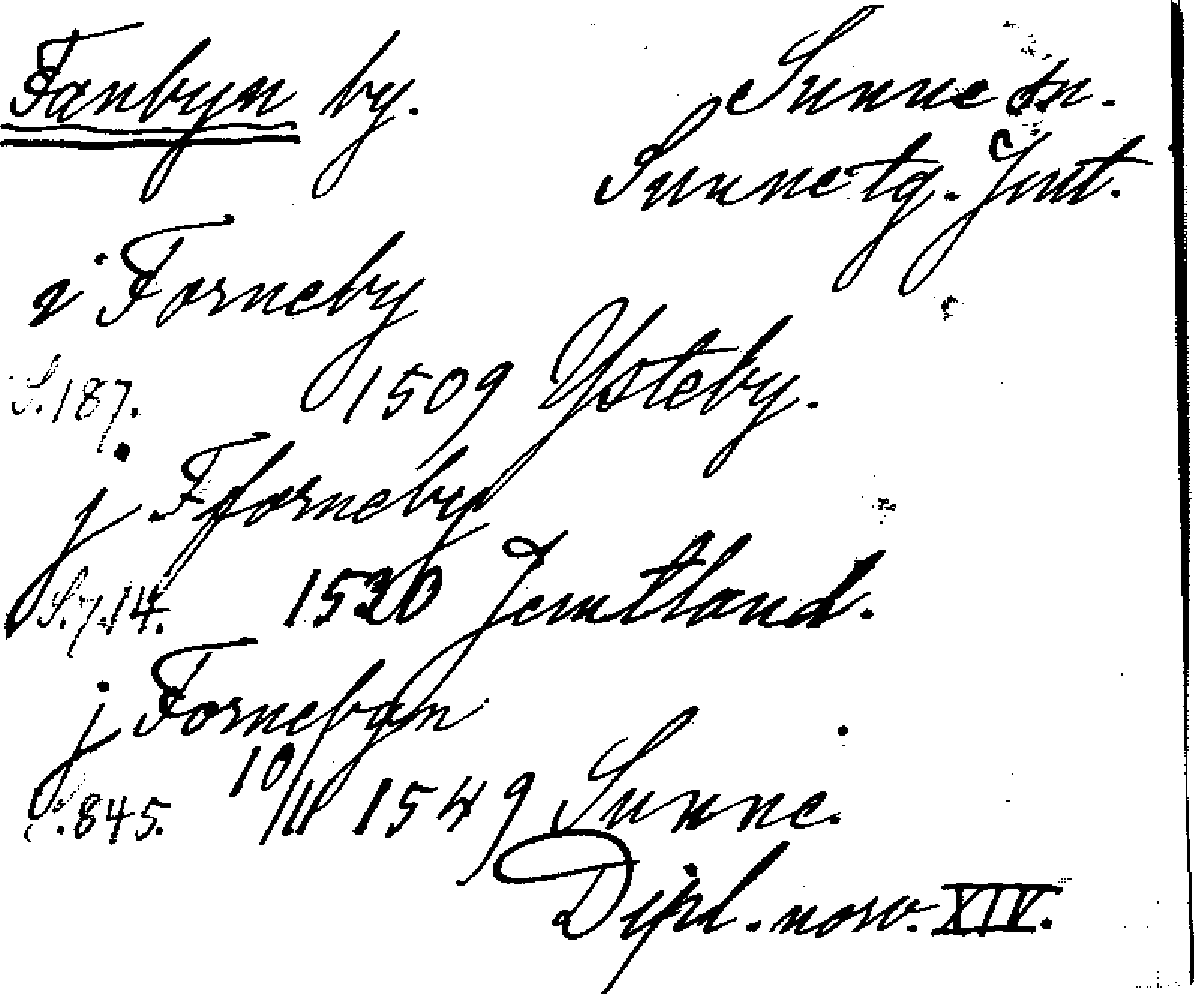 Fanbyn by. Sunne sn.
Sunne tg. Jmt.
i Forneby
S. 187. 1509 Ysteby.
j Fforneby
S. 714. 1520 Jemtland.
j Fornebyn
S. 845. 10/11 1549 Sunne.
Dipl. norv. XIV.